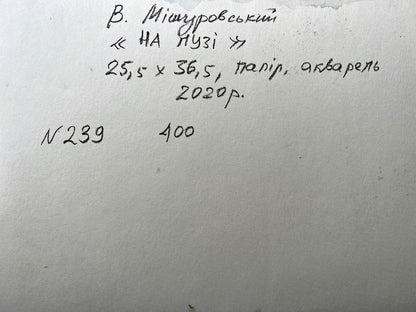 В. Мішуровський
« НА ЛУЗІ »
25,5 x 36,5, папір, акварель
2020р.
N 239 400